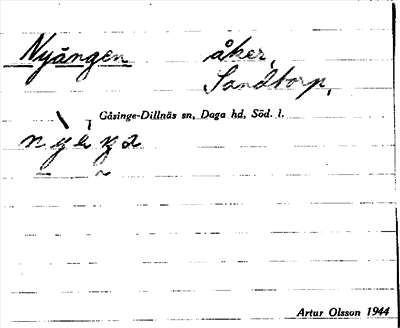 Nyängen åker,
Sandtorp,
Gåsinge-Dillnäs sn, Daga hd, Söd. l.
Artur Olsson 1944